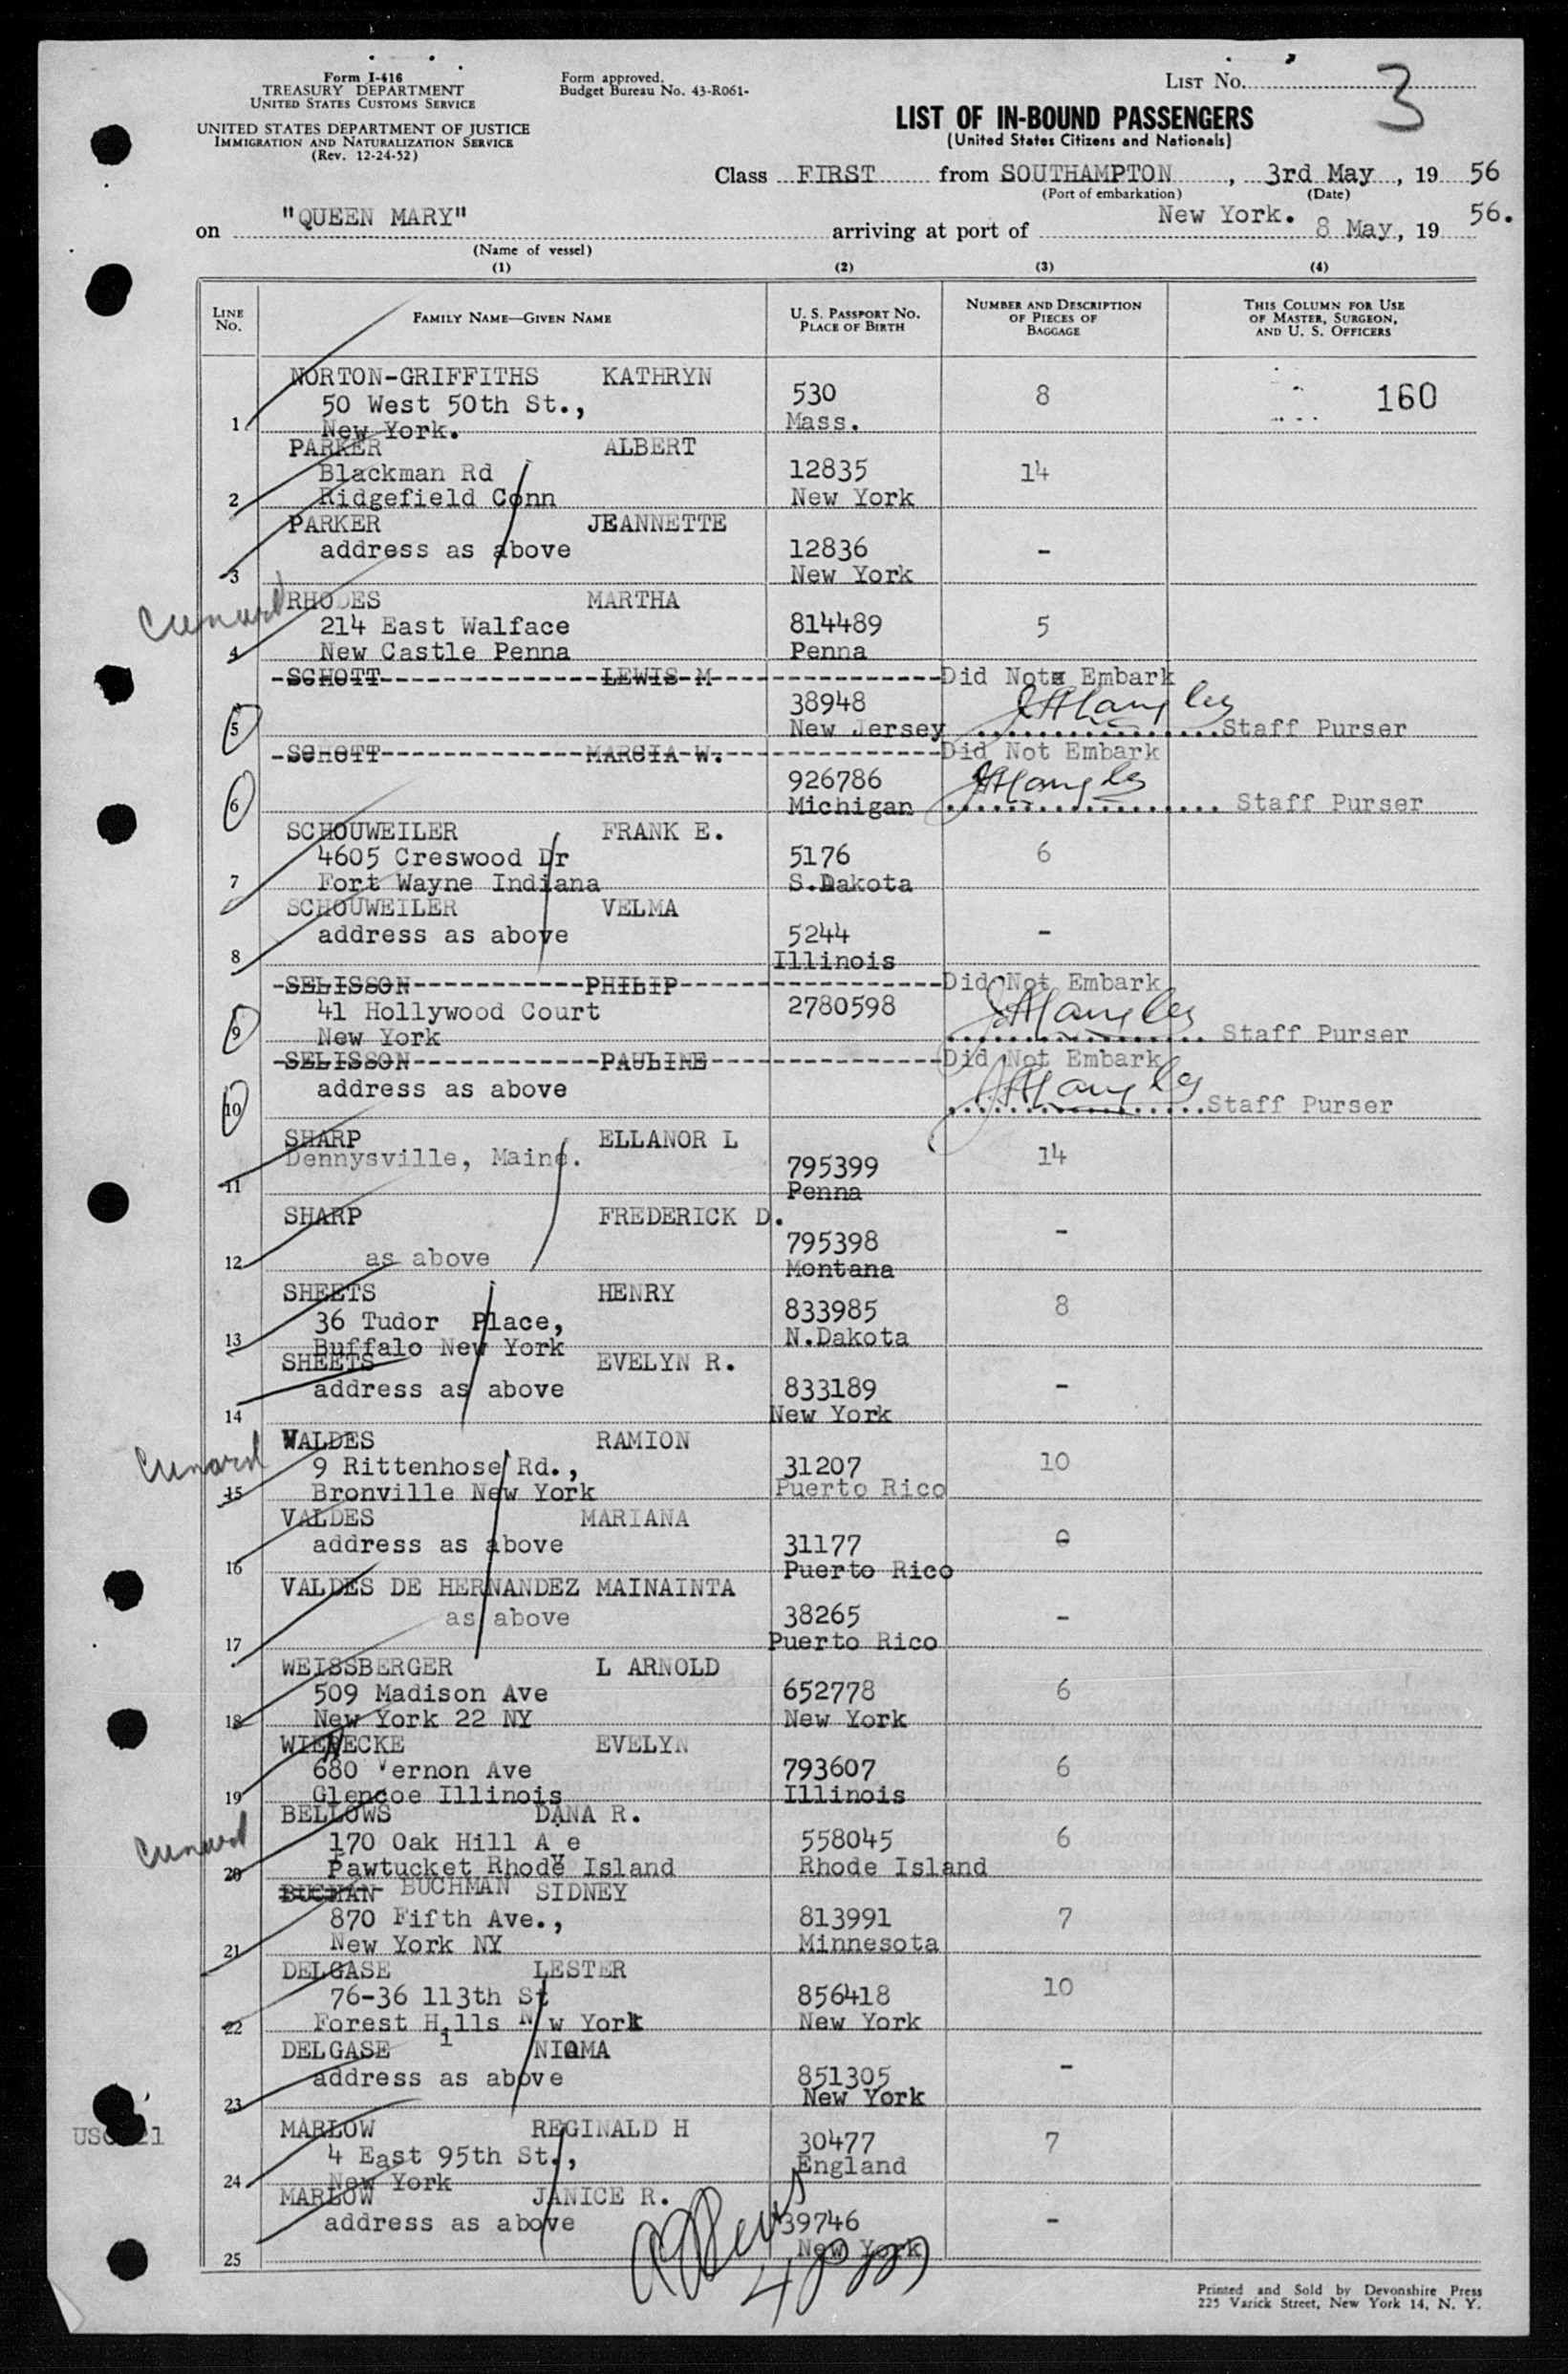 Form I-416
TREASURY DEPARTMENT
UNITED STATES CUSTOMS SERVICE
UNITED STATES DEPARTMENT OF JUSTICE
IMMIGRATION AND NATURALIZATION SERVICE
(Rev. 12-24-52)
Form approved.
Budget Bureau No. 43-R061-
LIST No. 3
LIST OF IN-BOUND PASSENGERS
(United States Citizens and Nationals)
Class FIRST from SOUTHAMPTON, 3rd May, 19 56
(Port of embarkation) (Date)
on "QUEEN MARY" arriving at port of New York. 8 May, 19 56.
(Name of vessel)
(1) (2) (3) (4)
LINE No. FAMILY NAME—GIVEN NAME U. S. PASSPORT NO. PLACE OF BIRTH NUMBER AND DESCRIPTION OF PIECES OF BAGGAGE THIS COLUMN FOR USE OF MASTER, SURGEON, AND U. S. OFFICERS
NORTON-GRIFFITHS KATHRYN
50 West 50th St., 530 8 160
1 New York. Mass.
PARKER ALBERT
Blackman Rd 12835 14
2 Ridgefield Conn New York
PARKER JEANNETTE
address as above 12836 -
3 New York
Cunard RHODES MARTHA
214 East Walface 814489 5
4 New Castle Penna Penna
-SCHOTT--------------LEWIS-M---------------Did Notx Embark
38948
5 New Jersey ................Staff Purser
-SCHOTT-------------MARCIA-W.--------------Did Not Embark
926786
6 Michigan .................. Staff Purser
SCHOUWEILER FRANK E.
4605 Creswood Dr 5176 6
7 Fort Wayne Indiana S.Dakota
SCHOUWEILER VELMA
address as above 5244 -
8 Illinois
-SELISSON-----------PHILIP-----------------Did Not Embark
41 Hollywood Court 2780598
9 New York ................. Staff Purser
-SELISSON------------PAULINE---------------Did Not Embark
address as above
10 .................Staff Purser
SHARP ELLANOR L
Dennysville, Maine. 795399 14
11 Penna
SHARP FREDERICK D.
795398 -
12 as above Montana
SHEETS HENRY
36 Tudor Place, 833985 8
13 Buffalo New York N.Dakota
SHEETS EVELYN R.
address as above 833189 -
14 New York
Cunard VALDES RAMION
9 Rittenhose Rd., 31207 10
15 Bronville New York Puerto Rico
VALDES MARIANA
address as above 31177
16 Puerto Rico
VALDES DE HERNANDEZ MAINAINTA
as above 38265 -
17 Puerto Rico
WEISSBERGER L ARNOLD
509 Madison Ave 652778 6
18 New York 22 NY New York
WIENECKE EVELYN
680 Vernon Ave 793607 6
19 Glencoe Illinois Illinois
Cunard BELLOWS DANA R.
170 Oak Hill Ave 558045 6
20 Pawtucket Rhode Island Rhode Island
BUCHAN- BUCHMAN SIDNEY
870 Fifth Ave., 813991 7
21 New York NY Minnesota
DELGASE LESTER
76-36 113th St 856418 10
22 Forest Hills N w York New York
DELGASE NIOMA
address as above 851305 -
23 New York
MARLOW REGINALD H
4 East 95th St., 30477 7
24 New York England
MARLOW JANICE R.
address as above 39746 -
25 New York
Printed and Sold by Devonshire Press
225 Varick Street, New York 14, N. Y.